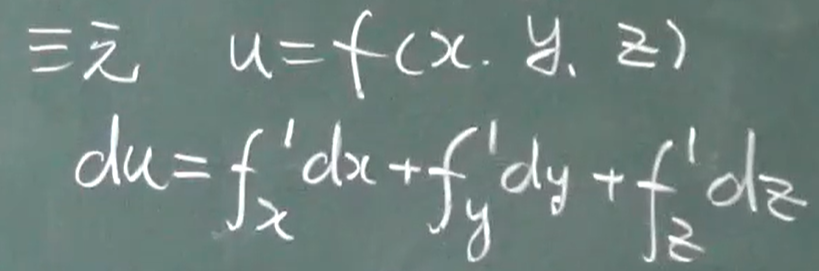 三元 u=f(x. y、z)
du=f'ₓdx+f'_y dy+f'_z dz